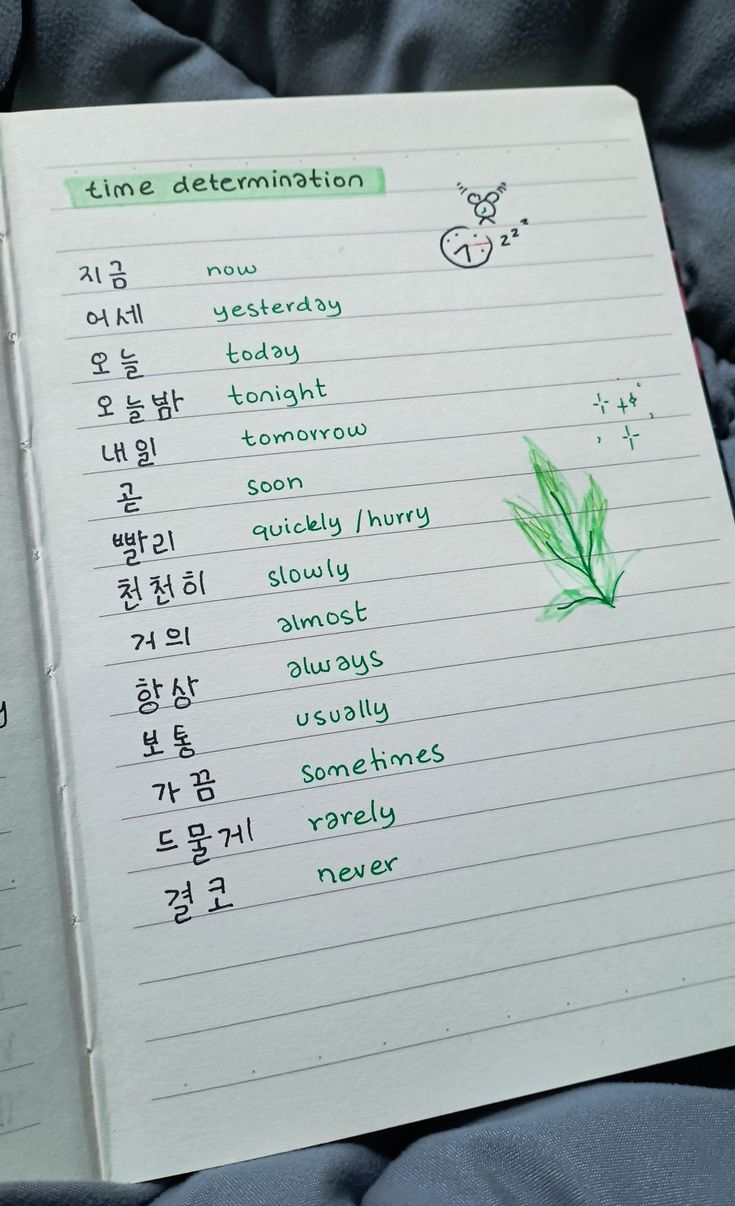 time determination
z z z
지금 now
어세 yesterday
오늘 today
오늘밤 tonight
내일 tomorrow
곧 soon
빨리 quickly / hurry
천천히 slowly
거의 almost
항상 always
보통 usually
가끔 sometimes
드물게 rarely
결코 never